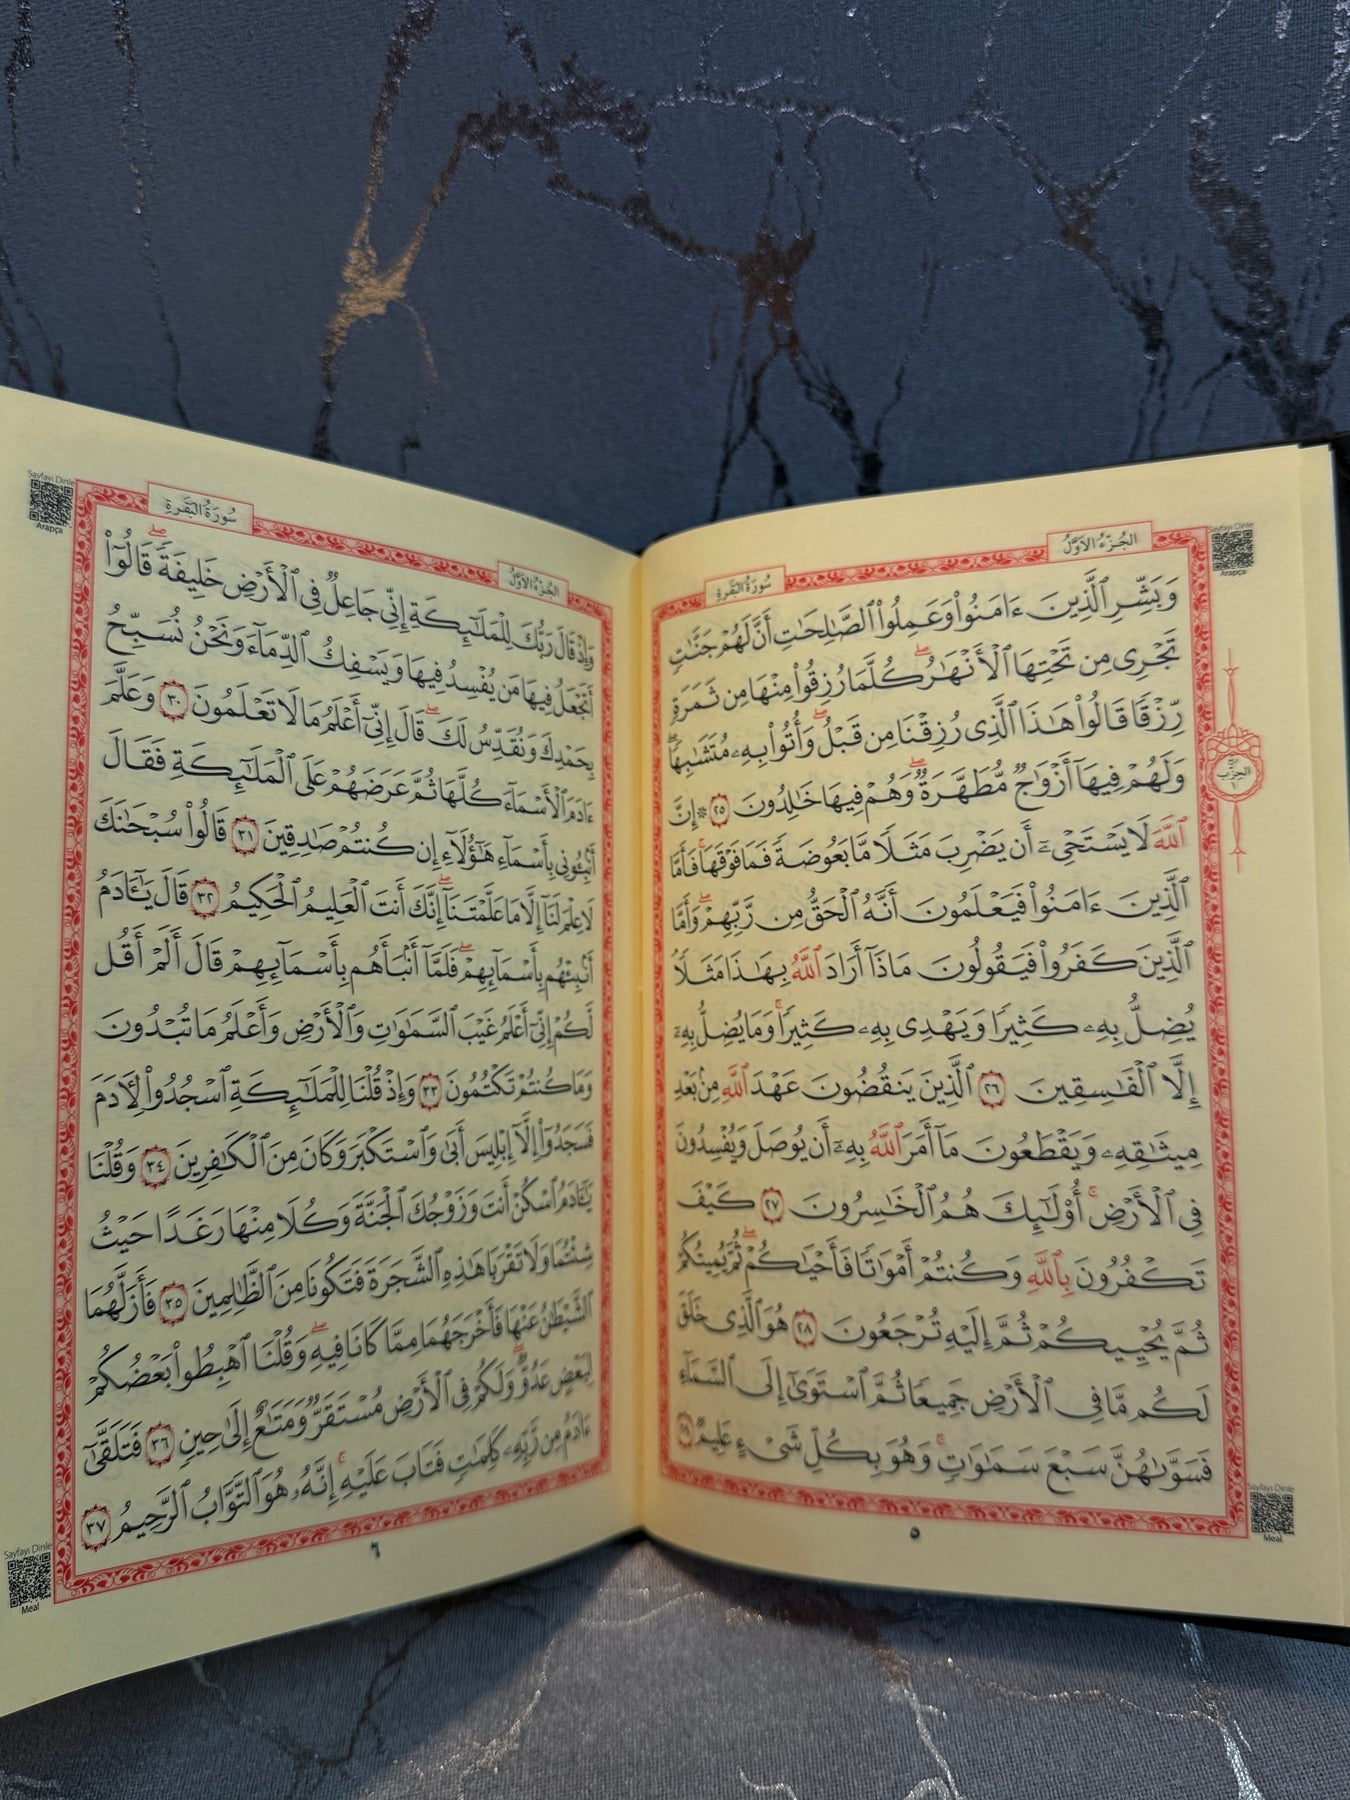 الجزء الأول
سورة البقرة
Sayfayı Dinle
Arapça
وَبَشِّرِ ٱلَّذِينَ ءَامَنُوا۟ وَعَمِلُوا۟ ٱلصَّٰلِحَٰتِ أَنَّ لَهُمْ جَنَّٰتٍ
تَجْرِى مِن تَحْتِهَا ٱلْأَنْهَٰرُ ۖ كُلَّمَا رُزِقُوا۟ مِنْهَا مِن ثَمَرَةٍ
رِّزْقًا قَالُوا۟ هَٰذَا ٱلَّذِى رُزِقْنَا مِن قَبْلُ ۖ وَأُتُوا۟ بِهِۦ مُتَشَٰبِهًا ۖ
وَلَهُمْ فِيهَآ أَزْوَٰجٌ مُّطَهَّرَةٌ ۖ وَهُمْ فِيهَا خَٰلِدُونَ ٢٥ ۞ إِنَّ
ٱللَّهَ لَا يَسْتَحْىِۦٓ أَن يَضْرِبَ مَثَلًا مَّا بَعُوضَةً فَمَا فَوْقَهَا ۚ فَأَمَّا
ٱلَّذِينَ ءَامَنُوا۟ فَيَعْلَمُونَ أَنَّهُ ٱلْحَقُّ مِن رَّبِّهِمْ ۖ وَأَمَّا
ٱلَّذِينَ كَفَرُوا۟ فَيَقُولُونَ مَاذَآ أَرَادَ ٱللَّهُ بِهَٰذَا مَثَلًا ۘ
يُضِلُّ بِهِۦ كَثِيرًا وَيَهْدِى بِهِۦ كَثِيرًا ۚ وَمَا يُضِلُّ بِهِۦٓ
إِلَّا ٱلْفَٰسِقِينَ ٢٦ ٱلَّذِينَ يَنقُضُونَ عَهْدَ ٱللَّهِ مِنۢ بَعْدِ
مِيثَٰقِهِۦ وَيَقْطَعُونَ مَآ أَمَرَ ٱللَّهُ بِهِۦٓ أَن يُوصَلَ وَيُفْسِدُونَ
فِى ٱلْأَرْضِ ۚ أُو۟لَٰٓئِكَ هُمُ ٱلْخَٰسِرُونَ ٢٧ كَيْفَ
تَكْفُرُونَ بِٱللَّهِ وَكُنتُمْ أَمْوَٰتًا فَأَحْيَٰكُمْ ۖ ثُمَّ يُمِيتُكُمْ
ثُمَّ يُحْيِيكُمْ ثُمَّ إِلَيْهِ تُرْجَعُونَ ٢٨ هُوَ ٱلَّذِى خَلَقَ
لَكُم مَّا فِى ٱلْأَرْضِ جَمِيعًا ثُمَّ ٱسْتَوَىٰٓ إِلَى ٱلسَّمَآءِ
فَسَوَّىٰهُنَّ سَبْعَ سَمَٰوَٰتٍ ۚ وَهُوَ بِكُلِّ شَىْءٍ عَلِيمٌ ٢٩
الحزب
Sayfayı Dinle
Meal
٥
سورة البقرة
الجزء الأول
Sayfayı Dinle
Arapça
وَإِذْ قَالَ رَبُّكَ لِلْمَلَٰٓئِكَةِ إِنِّى جَاعِلٌ فِى ٱلْأَرْضِ خَلِيفَةً ۖ قَالُوٓا۟
أَتَجْعَلُ فِيهَا مَن يُفْسِدُ فِيهَا وَيَسْفِكُ ٱلدِّمَآءَ وَنَحْنُ نُسَبِّحُ
بِحَمْدِكَ وَنُقَدِّسُ لَكَ ۖ قَالَ إِنِّىٓ أَعْلَمُ مَا لَا تَعْلَمُونَ ٣٠ وَعَلَّمَ
ءَادَمَ ٱلْأَسْمَآءَ كُلَّهَا ثُمَّ عَرَضَهُمْ عَلَى ٱلْمَلَٰٓئِكَةِ فَقَالَ
أَنۢبِـُٔونِى بِأَسْمَآءِ هَٰٓؤُلَآءِ إِن كُنتُمْ صَٰدِقِينَ ٣١ قَالُوا۟ سُبْحَٰنَكَ
لَا عِلْمَ لَنَآ إِلَّا مَا عَلَّمْتَنَآ ۖ إِنَّكَ أَنتَ ٱلْعَلِيمُ ٱلْحَكِيمُ ٣٢ قَالَ يَٰٓـَٔادَمُ
أَنۢبِئْهُم بِأَسْمَآئِهِمْ ۖ فَلَمَّآ أَنۢبَأَهُم بِأَسْمَآئِهِمْ قَالَ أَلَمْ أَقُل
لَّكُمْ إِنِّىٓ أَعْلَمُ غَيْبَ ٱلسَّمَٰوَٰتِ وَٱلْأَرْضِ وَأَعْلَمُ مَا تُبْدُونَ
وَمَا كُنتُمْ تَكْتُمُونَ ٣٣ وَإِذْ قُلْنَا لِلْمَلَٰٓئِكَةِ ٱسْجُدُوا۟ لِـَٔادَمَ
فَسَجَدُوٓا۟ إِلَّآ إِبْلِيسَ أَبَىٰ وَٱسْتَكْبَرَ وَكَانَ مِنَ ٱلْكَٰفِرِينَ ٣٤ وَقُلْنَا
يَٰٓـَٔادَمُ ٱسْكُنْ أَنتَ وَزَوْجُكَ ٱلْجَنَّةَ وَكُلَا مِنْهَا رَغَدًا حَيْثُ
شِئْتُمَا وَلَا تَقْرَبَا هَٰذِهِ ٱلشَّجَرَةَ فَتَكُونَا مِنَ ٱلظَّٰلِمِينَ ٣٥ فَأَزَلَّهُمَا
ٱلشَّيْطَٰنُ عَنْهَا فَأَخْرَجَهُمَا مِمَّا كَانَا فِيهِ ۖ وَقُلْنَا ٱهْبِطُوا۟ بَعْضُكُمْ
لِبَعْضٍ عَدُوٌّ ۖ وَلَكُمْ فِى ٱلْأَرْضِ مُسْتَقَرٌّ وَمَتَٰعٌ إِلَىٰ حِينٍ ٣٦ فَتَلَقَّىٰٓ
ءَادَمُ مِن رَّبِّهِۦ كَلِمَٰتٍ فَتَابَ عَلَيْهِ ۚ إِنَّهُۥ هُوَ ٱلتَّوَّابُ ٱلرَّحِيمُ ٣٧
Sayfayı Dinle
Meal
٦